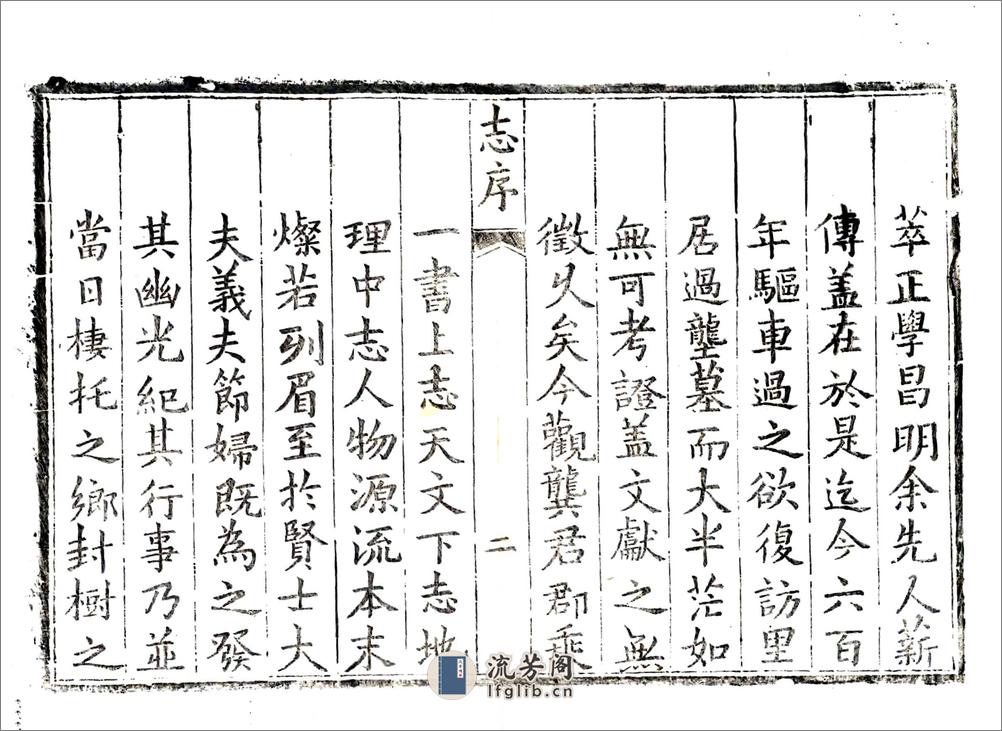 萃正學昌明余先人薪
傳蓋在於是迄今六百
年驅車過之欲復訪里
居過壟墓而大半茫如
無可考證蓋文獻之無
徵久矣今觀龔君郡乘
志序
二
一書上志天文下志地
理中志人物源流本末
燦若列眉至於賢士大
夫義夫節婦既為之發
其幽光紀其行事乃並
當日棲托之鄉封樹之
流芳阁
lfglib.cn